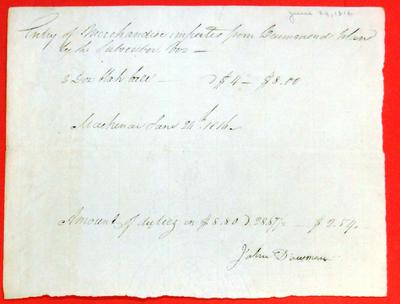 June 24, 1816
Entry of Merchandise imported from Drummond Island
by the Subscriber Viz —
2 Doz $4 — $8.00
Mackinac June 24th 1816
Amount of duties on $8.80 — $2.54
John Dousman